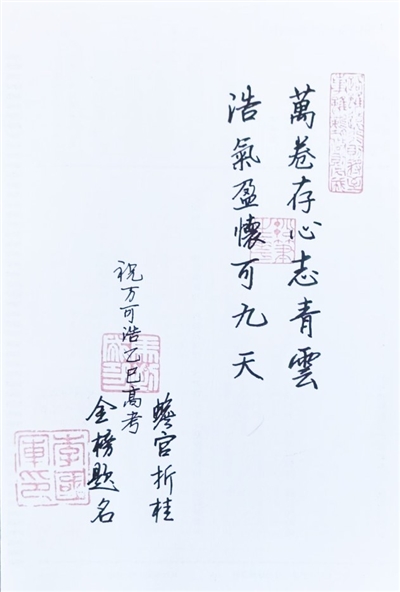 萬卷存心志青雲
浩氣盈懷可九天
祝万可浩乙巳高考
蟾宫折桂
金榜题名
李國軍印